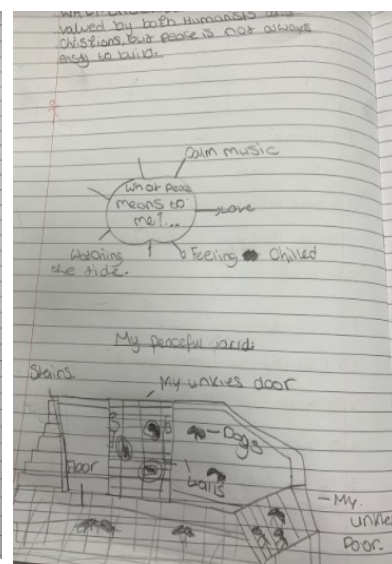 valued by both Humanists and
Christians, but peace is not always
easy to build.
Calm music
What peac
means to
me?...
Love
Watching
the tide.
Feeling Chilled
My peaceful
Stairs.
My unkles door
Dogs
Floor
walls
My
unkles
Door.